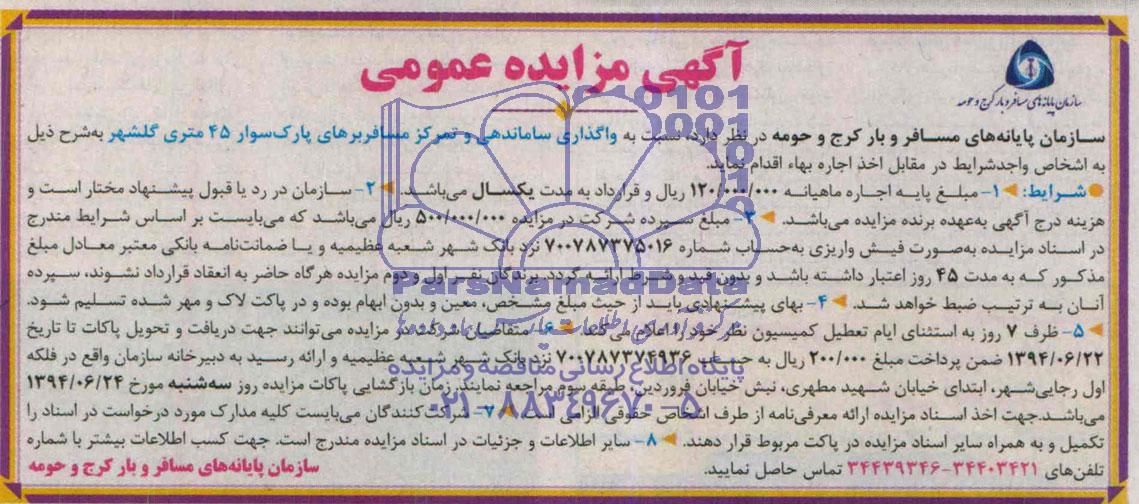 آگهی مزایده عمومی
سازمان پایانه‌های مسافر و بار کرج و حومه
سازمان پایانه‌های مسافر و بار کرج و حومه در نظر دارد، نسبت به واگذاری ساماندهی و تمرکز مسافربرهای پارک‌سوار ۴۵ متری گلشهر به‌شرح ذیل
به اشخاص واجدشرایط در مقابل اخذ اجاره بهاء اقدام نماید.
شرایط: ۱- مبلغ پایه اجاره ماهیانه ۱۲۰/۰۰۰/۰۰۰ ریال و قرارداد به مدت یکسال می‌باشد. ۲- سازمان در رد یا قبول پیشنهاد مختار است و
هزینه درج آگهی به‌عهده برنده مزایده می‌باشد. ۳- مبلغ سپرده شرکت در مزایده ۵۰۰/۰۰۰/۰۰۰ ریال می‌باشد که می‌بایست بر اساس شرایط مندرج
در اسناد مزایده به‌صورت فیش واریزی به‌حساب شماره ۷۰۰۷۸۷۳۷۵۰۱۶ نزد بانک شهر شعبه عظیمیه و یا ضمانت‌نامه بانکی معتبر معادل مبلغ
مذکور که به مدت ۴۵ روز اعتبار داشته باشد و بدون قید و شرط ارائه گردد. برندگان نفر اول و دوم مزایده هرگاه حاضر به انعقاد قرارداد نشوند، سپرده
آنان به ترتیب ضبط خواهد شد. ۴- بهای پیشنهادی باید از حیث مبلغ مشخص، معین و بدون ابهام بوده و در پاکت لاک و مهر شده تسلیم شود.
۵- ظرف ۷ روز به استثنای ایام تعطیل کمیسیون نظر خود را اعلام می‌کند. ۶- متقاضیان شرکت در مزایده می‌توانند جهت دریافت و تحویل پاکات تا تاریخ
۱۳۹۴/۰۶/۲۲ ضمن پرداخت مبلغ ۲۰۰/۰۰۰ ریال به حساب ۷۰۰۷۸۷۳۷۴۹۳۶ نزد بانک شهر شعبه عظیمیه و ارائه رسید به دبیرخانه سازمان واقع در فلکه
اول رجایی‌شهر، ابتدای خیابان شهید مطهری، نبش خیابان فروردین، طبقه سوم مراجعه نمایند. زمان بازگشایی پاکات مزایده روز سه‌شنبه مورخ ۱۳۹۴/۰۶/۲۴
می‌باشد. جهت اخذ اسناد مزایده ارائه معرفی‌نامه از طرف اشخاص حقوقی الزامی است. ۷- شرکت‌کنندگان می‌بایست کلیه مدارک مورد درخواست در اسناد را
تکمیل و به همراه سایر اسناد مزایده در پاکت مربوط قرار دهند. ۸- سایر اطلاعات و جزئیات در اسناد مزایده مندرج است. جهت کسب اطلاعات بیشتر با شماره
تلفن‌های ۳۴۴۰۳۴۲۱-۳۴۴۳۹۳۴۶ تماس حاصل نمایید.
سازمان پایانه‌های مسافر و بار کرج و حومه
ParsNamadData
پایگاه اطلاع رسانی مناقصه و مزایده
۰۲۱-۸۸۳۴۹۶۷۰-۵